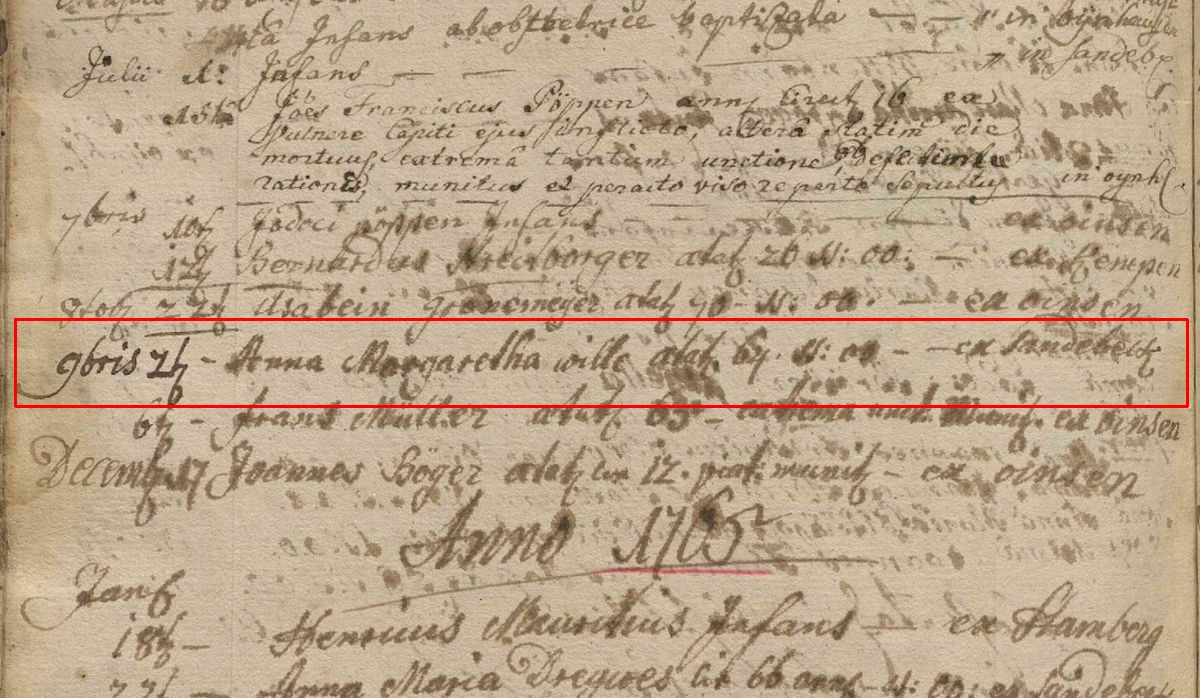 Infans ab obstetrice baptizata — — in oÿnhauser
in Sandeb.
Julii 1: Infans — — —
15ta Joes Franciscus Pöppen annꝫ circit 16 ex
vulnere capiti ejus inflicto, altera statim die
mortuus, extremâ tantum unctione,
rationis, munitus et peracto viso reperto sepultus in oynh.
7bris 10ꝫ Jodoci pöppen Infans — — — ex oinsen
12ꝫ Bernardus alatꝫ 26 N: 00: — ex Kempen
8tobꝫ 22ꝫ Ilsabein gronemeyer alatꝫ 90 - N: 00 — ex oinsen
9bris 2ꝫ - Anna Margaretha wille alatꝫ N: 00 - - ex Sandebeck
6ꝫ - frans Müller alatꝫ 65 - extrema unct: munitꝫ ex oinsen
Decembꝫ 17 Joannes Böger alatꝫ 12. munitꝫ - ex oinsen
Anno 1765
Janꝫ
18ꝫ - Henricus Mauritius Infans — ex Hamberg
22ꝫ - Anna Maria Drewes cir 66 annꝫ - N: 00: